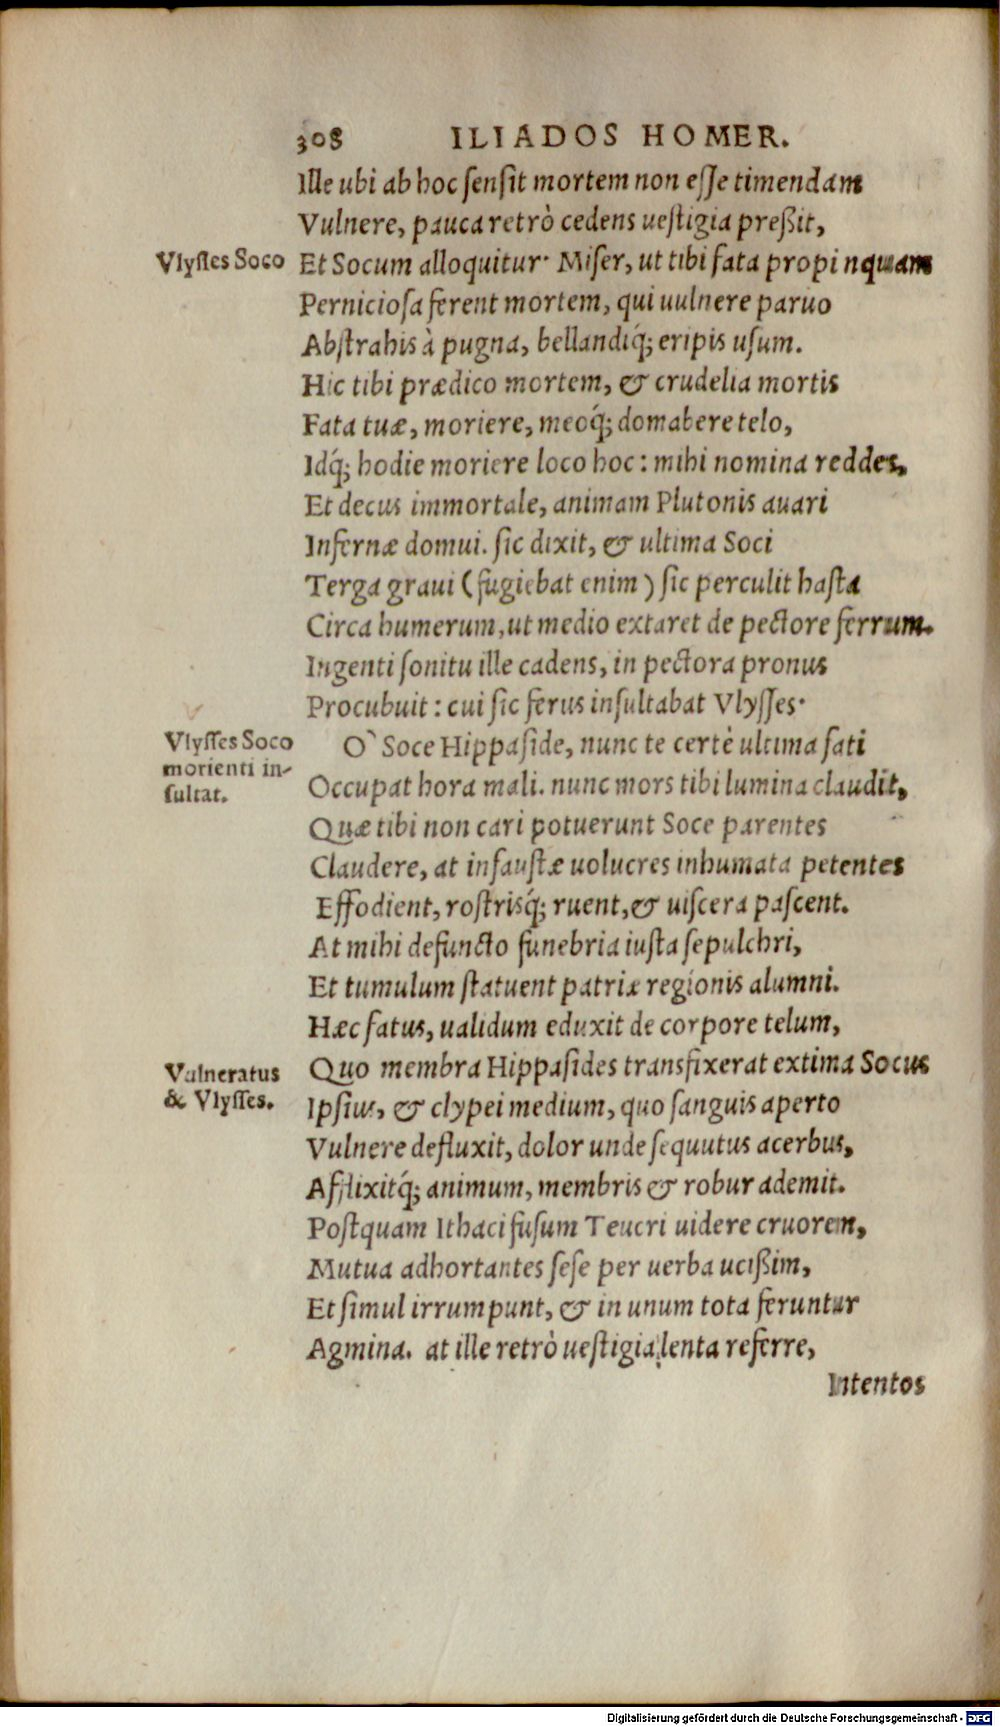 308 ILIADOS HOMER.
Ille ubi ab hoc sensit mortem non esse timendam
Vulnere, pauca retrò cedens uestigia preßit,
Vlysses Soco
Et Socum alloquitur· Miser, ut tibi fata propinquam
Perniciosa ferent mortem, qui uulnere paruo
Abstrahis à pugna, bellandiq́; eripis usum.
Hic tibi prædico mortem, & crudelia mortis
Fata tuæ, moriere, meoq́; domabere telo,
Idq́; hodie moriere loco hoc: mihi nomina reddes,
Et decus immortale, animam Plutonis auari
Infernæ domui. sic dixit, & ultima Soci
Terga graui (fugiebat enim) sic perculit hasta
Circa humerum, ut medio extaret de pectore ferrum.
Ingenti sonitu ille cadens, in pectora pronus
Procubuit: cui sic ferus insultabat Vlysses·
Vlysses Soco
morienti in-
sultat.
O` Soce Hippaside, nunc te certè ultima fati
Occupat hora mali. nunc mors tibi lumina claudit,
Quæ tibi non cari potuerunt Soce parentes
Claudere, at infaustæ uolucres inhumata petentes
Effodient, rostrisq́; ruent, & uiscera pascent.
At mihi defuncto funebria iusta sepulchri,
Et tumulum statuent patriæ regionis alumni.
Hæc fatus, ualidum eduxit de corpore telum,
Vulneratus
& Vlysses.
Quo membra Hippasides transfixerat extima Socus
Ipsius, & clypei medium, quo sanguis aperto
Vulnere defluxit, dolor unde sequutus acerbus,
Afflixitq́; animum, membris & robur ademit.
Postquam Ithaci fusum Teucri uidere cruorem,
Mutua adhortantes sese per uerba uicißim,
Et simul irrumpunt, & in unum tota feruntur
Agmina. at ille retrò uestigia lenta referre,
Intentos
Digitalisierung gefördert durch die Deutsche Forschungsgemeinschaft - DFG